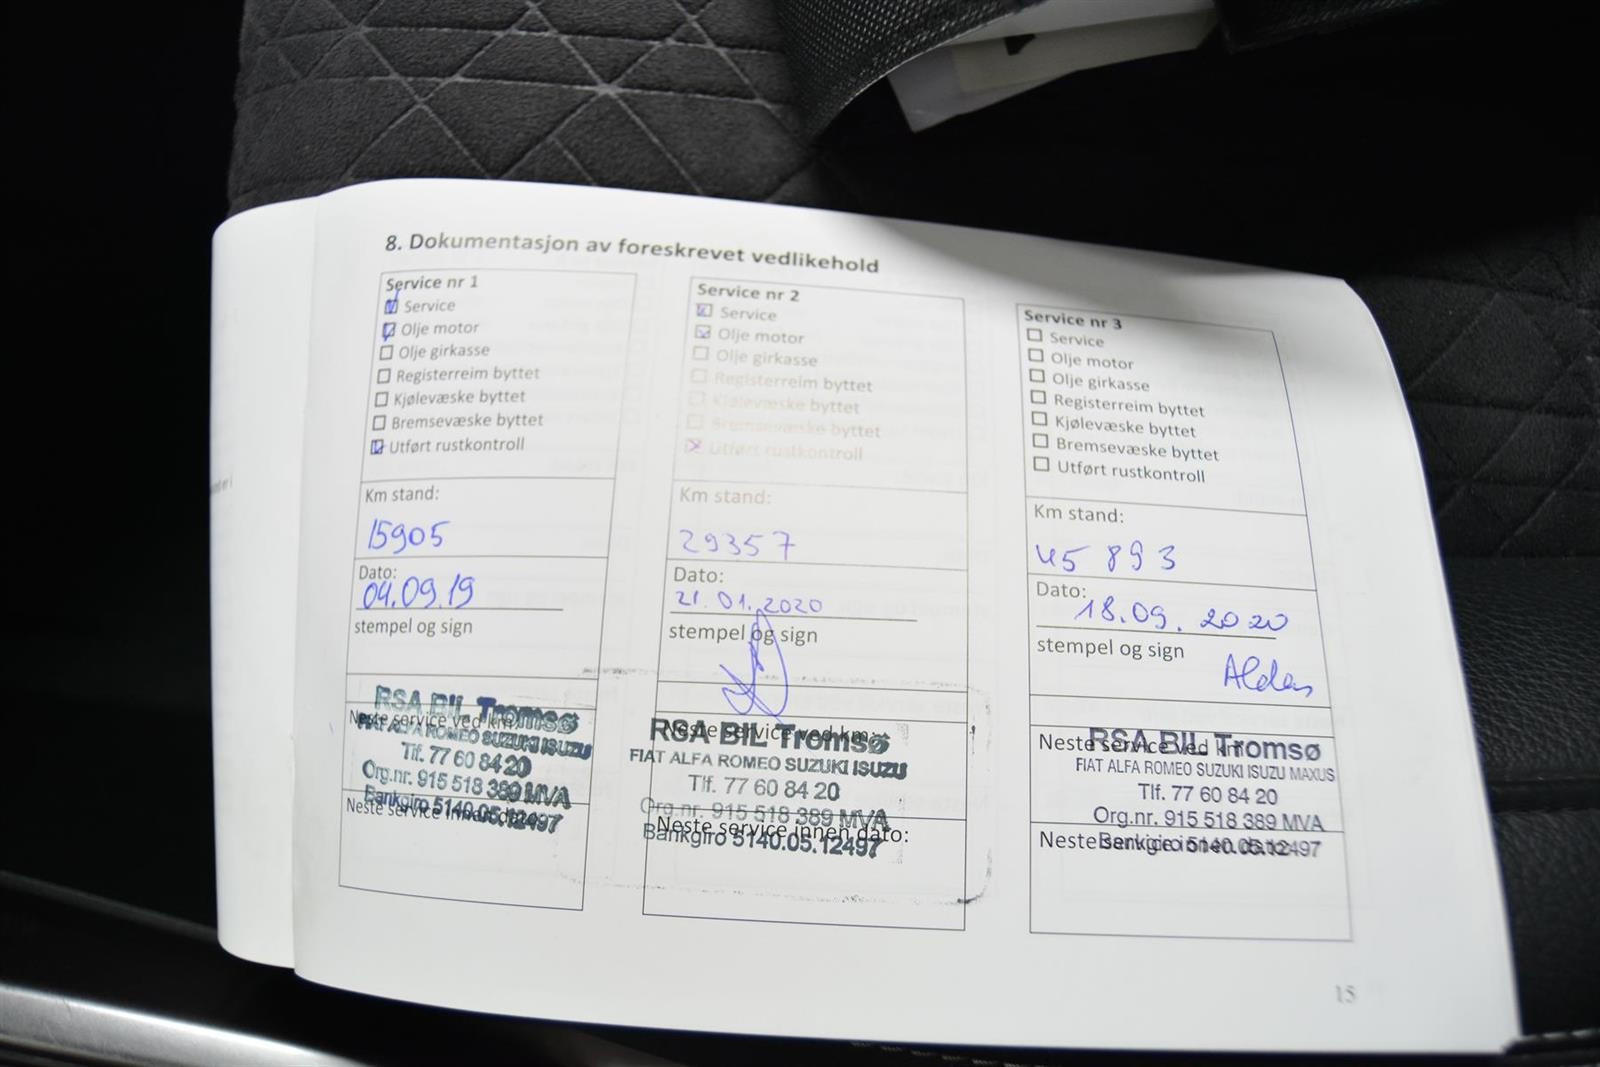 8. Dokumentasjon av foreskrevet vedlikehold
Service nr 1
Service
Olje motor
Olje girkasse
Registerreim byttet
Kjølevæske byttet
Bremsevæske byttet
Utført rustkontroll
Km stand:
15905
Dato:
04.09.19
stempel og sign
RSA BIL Tromsø
Neste service ved km:
FIAT ALFA ROMEO SUZUKI ISUZU
Tlf. 77 60 84 20
Org.nr. 915 518 389 MVA
Bankgiro 5140.05.12497
Neste service innen dato:
Service nr 2
Service
Olje motor
Olje girkasse
Registerreim byttet
Kjølevæske byttet
Bremsevæske byttet
Utført rustkontroll
Km stand:
29357
Dato:
21.01.2020
stempel og sign
RSA BIL Tromsø
Neste service ved km:
FIAT ALFA ROMEO SUZUKI ISUZU
Tlf. 77 60 84 20
Org.nr. 915 518 389 MVA
Neste service innen dato:
Bankgiro 5140.05.12497
Service nr 3
Service
Olje motor
Olje girkasse
Registerreim byttet
Kjølevæske byttet
Bremsevæske byttet
Utført rustkontroll
Km stand:
45 893
Dato:
18.09.2020
stempel og sign
Aldas
RSA BIL Tromsø
Neste service ved km
FIAT ALFA ROMEO SUZUKI ISUZU MAXUS
Tlf. 77 60 84 20
Org.nr. 915 518 389 MVA
Neste service innen dato:
Bankgiro 5140.05.12497
15